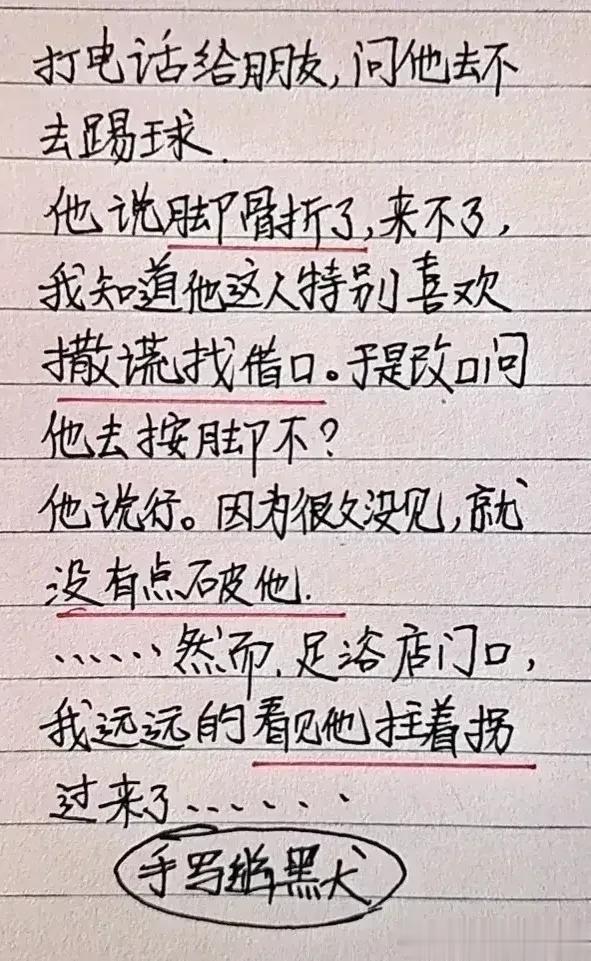 打电话给朋友,问他去不
去踢球.
他说脚骨折了,来不了,
我知道他这人特别喜欢
撒谎找借口。于是改口问
他去按脚不?
他说行。因为很久没见,就
没有点破他.
......然而,足浴店门口,
我远远的看见他拄着拐
过来了......
手写幽黑犬